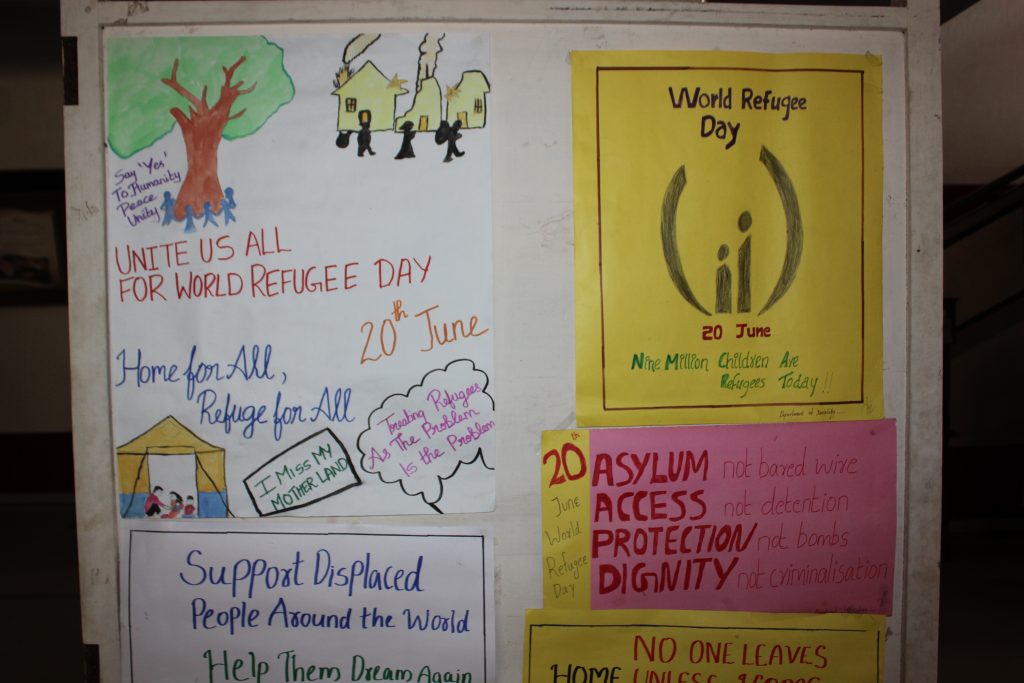 Say 'Yes'
To Humanity
Peace
Unity
UNITE US ALL
FOR WORLD REFUGEE DAY
20th June
Home for All,
Refuge for All
I MISS MY
MOTHER LAND
Treating Refugees
As The Problem
Is the Problem
Support Displaced
People Around the World
Help Them Dream Again
World Refugee
Day
20 June
Nine Million Children Are
Refugees Today !!
Department of
20th
June
World
Refugee
Day
ASYLUM not bared wire
ACCESS not detention
PROTECTION not bombs
DIGNITY not criminalisation
NO ONE LEAVES
HOME UNLESS